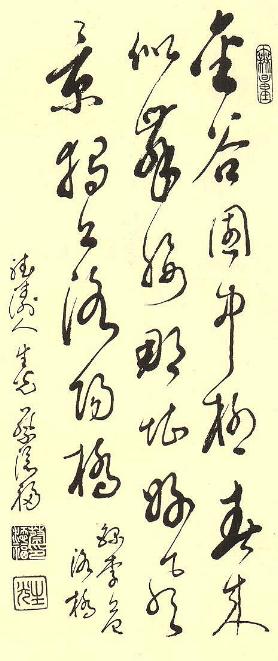 金谷園中柳春來
似舞腰那堪好風
景獨上洛陽橋
錄李益
洛橋
人生光蔡